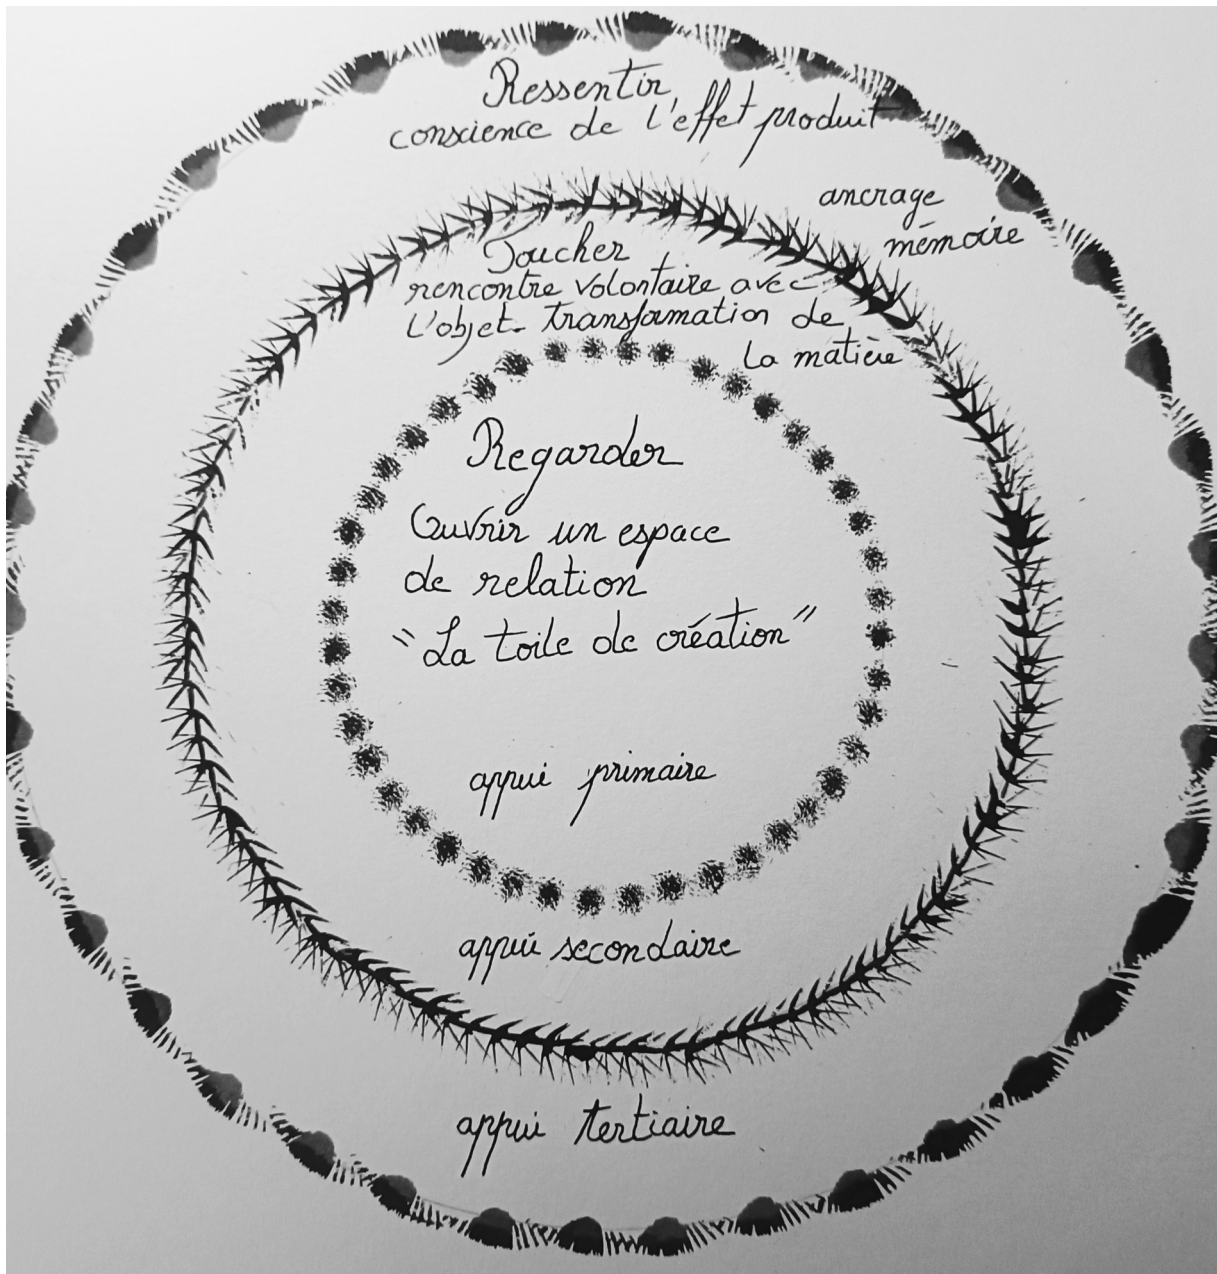 Ressentir
conscience de l'effet produit
ancrage
mémoire
Toucher
rencontre volontaire avec
l'objet. transformation de
la matière
Regarder
Ouvrir un espace
de relation
"La toile de création"
appui primaire
appui secondaire
appui tertiaire